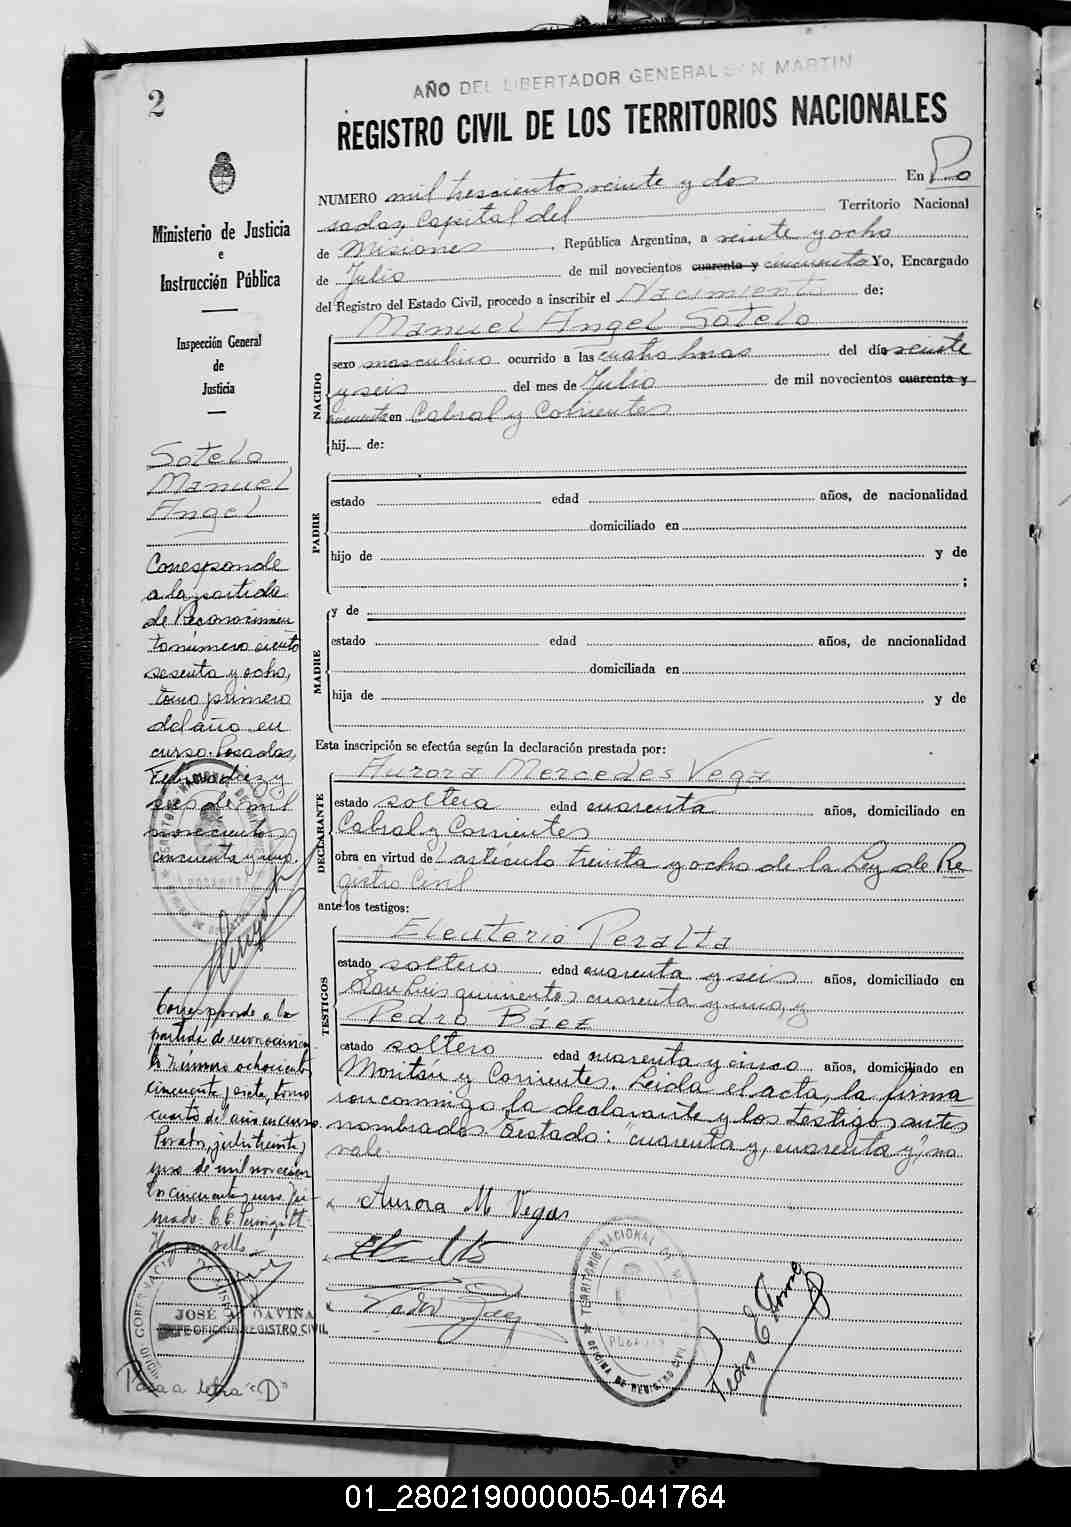 2
Ministerio de Justicia
e
Instrucción Pública
Inspección General
de
Justicia
Sotelo
Manuel
Angel
Corresponde
a la partida
de Reconocimien
to número ciento
sesenta y ocho,
tomo primero
del año en
curso. Posadas,
diez y
seis de mil
novecientos
cincuenta y uno.
Corresponde a la
partida de reconocimien
to número ochocientos
cincuenta y siete, tomo
cuarto del año en curso.
Posadas, julio treinta y
uno de mil novecien
tos cincuenta y uno.
JOSÉ GAVIÑA
JEFE OFICINA REGISTRO CIVIL
Pasa a letra "D"
AÑO DEL LIBERTADOR GENERAL SAN MARTIN
REGISTRO CIVIL DE LOS TERRITORIOS NACIONALES
NUMERO mil trescientos veinte y dos En Po
sadas, Capital del Territorio Nacional
de Misiones, República Argentina, a veinte y ocho
de Julio de mil novecientos cuarenta y cincuenta Yo, Encargado
del Registro del Estado Civil, procedo a inscribir el Nacimiento de:
Manuel Angel Sotelo
NACIDO
sexo masculino ocurrido a las cuatro horas del día veinte
y seis del mes de Julio de mil novecientos cuarenta y
cincuenta en Cabral y Corrientes
hij.... de:
PADRE
estado edad años, de nacionalidad
domiciliado en
hijo de y de
;
MADRE
y de
estado edad años, de nacionalidad
domiciliada en
hija de y de
Esta inscripción se efectúa según la declaración prestada por:
Aurora Mercedes Vega
DECLARANTE
estado soltera edad cuarenta años, domiciliado en
Cabral y Corrientes
obra en virtud de artículo treinta y ocho de la Ley de Re
gistro Civil
ante los testigos:
Eleuterio Peralta
TESTIGOS
estado soltero edad cuarenta y seis años, domiciliado en
San Luis quinientos cuarenta y uno, y
Pedro Báez
estado soltero edad cuarenta y cinco años, domiciliado en
Moritan y Corrientes. Leida el acta, la firma
con conmigo la declarante y los testigos antes
nombrados. Testado: "cuarenta y, cuarenta y", no
vale.
Aurora M Vega
Pedro Baez
TERRITORIO NACIONAL DE
POSADAS
OFICINA DE REGISTRO CIVIL
01_280219000005-041764